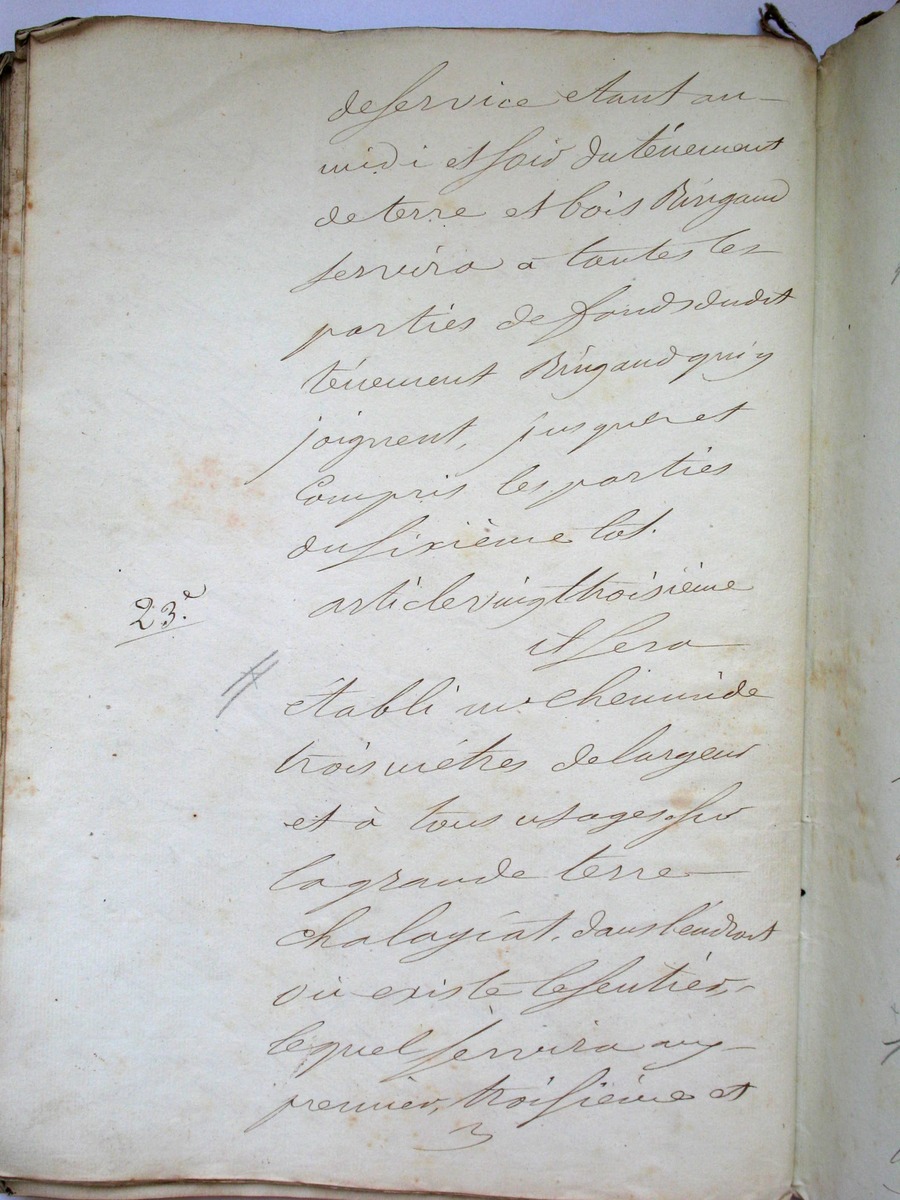 de service etant au
midi et soir du ténement
de terre et bois Béngaud
servira a toutes les
parties de fonds dudit
ténement Béngaud qui y
joignent, jusques et
Compris les parties
du sixième lot.
23.e article vingt troisième
il sera
établi un chemin de
trois métres de largeur
et à tous usages sur
la grande terre
chalayiat, dans l'endroit
où existe le sentier,
lequel servira aux
premier, troisième et